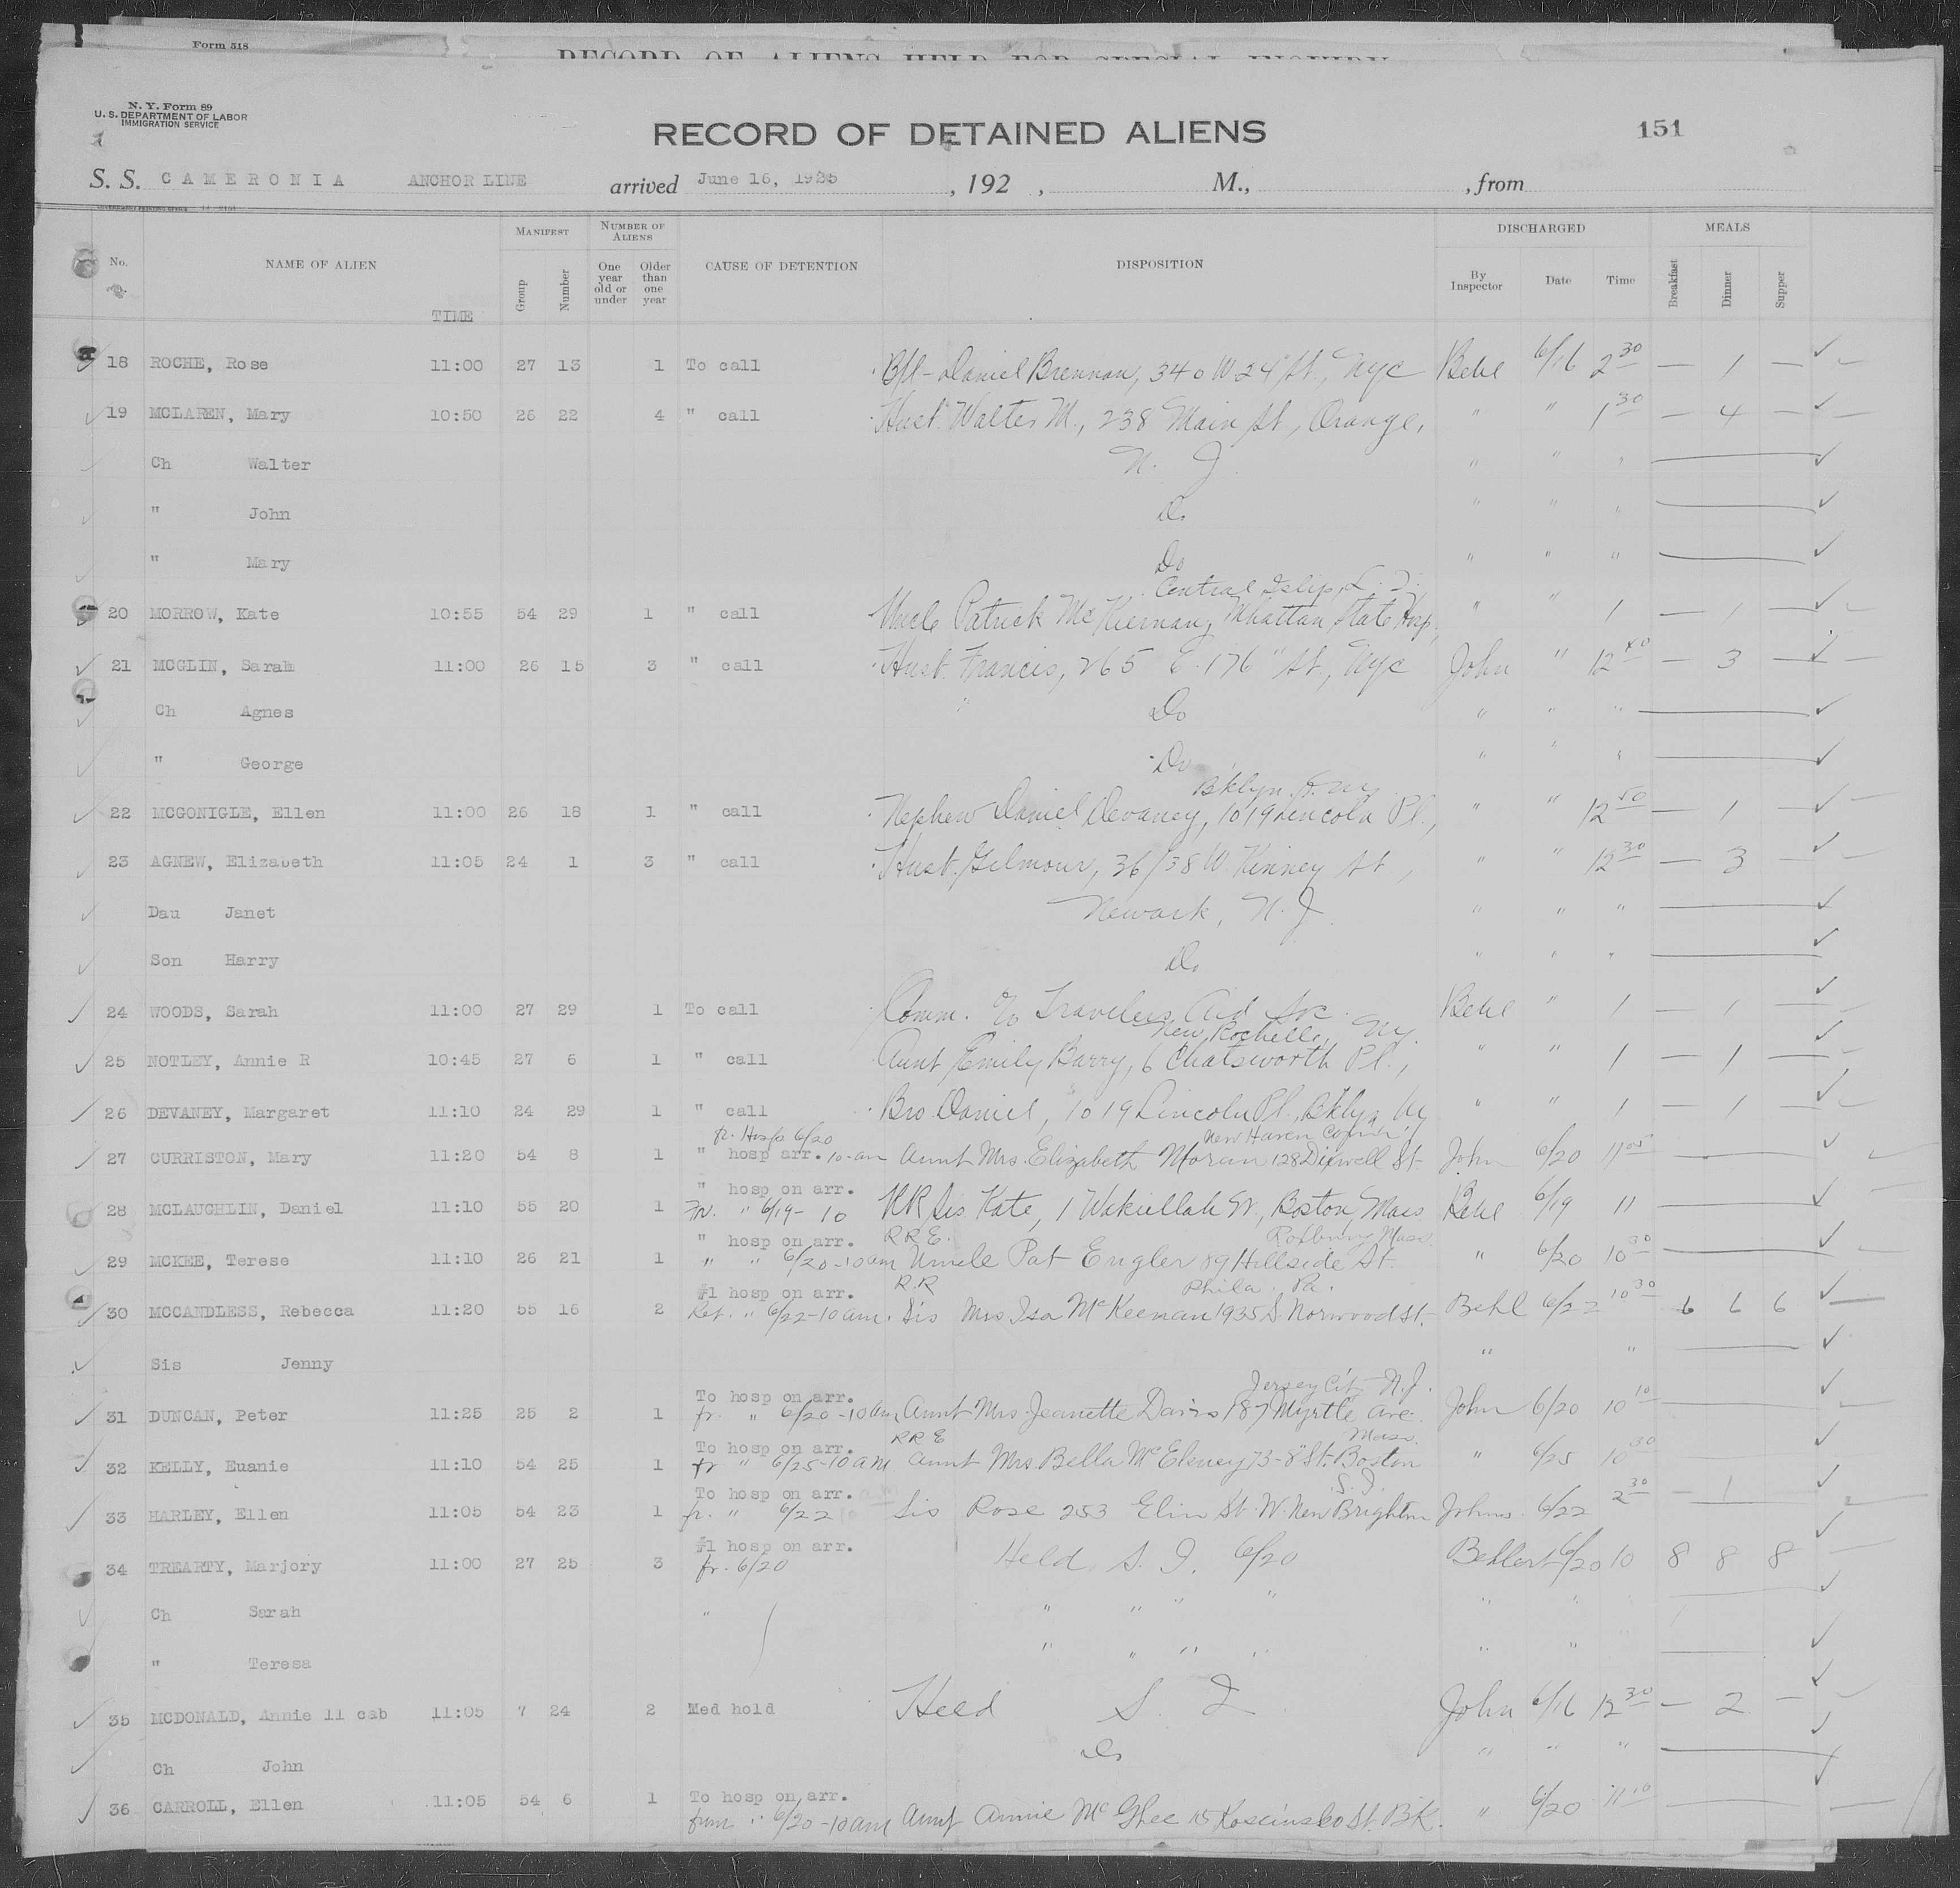 Form 518
RECORD OF ALIENS HELD FOR SPECIAL INQUIRY
N. Y. Form 89
U. S. DEPARTMENT OF LABOR
IMMIGRATION SERVICE
RECORD OF DETAINED ALIENS 151
S. S. CAMERONIA ANCHOR LINE arrived June 16, 1925, 192 , M., , from
MANIFEST NUMBER OF ALIENS DISCHARGED MEALS
No. NAME OF ALIEN TIME Group Number One year old or under Older than one year CAUSE OF DETENTION DISPOSITION By Inspector Date Time Breakfast Dinner Supper
18 ROCHE, Rose 11:00 27 13 1 To call Daniel Brennan, 340 W 24 St, NYC Behl 6/16 2 30 — 1 —
19 MCLAREN, Mary 10:50 26 22 4 " call Husb. Walter M., 238 Main St, Orange, " " 1 30 — 4 —
Ch Walter N. J. " " "
" John Do " " "
" Mary Do " " "
Central Islip, L. I.
20 MORROW, Kate 10:55 54 29 1 " call Uncle Patrick McKiernan, Mhattan State Hosp, " " 1 — 1 —
21 MCGLIN, Sarah 11:00 26 15 3 " call Husb. Francis, 265 E. 176" St, NYC John " 12 40 — 3 —
Ch Agnes " Do " " "
" George Do " " "
Bklyn, N.Y.
22 MCGONIGLE, Ellen 11:00 26 18 1 " call Nephew Daniel Devaney, 1019 Lincoln Pl., " " 12 50 — 1 —
23 AGNEW, Elizabeth 11:05 24 1 3 " call Husb. Gilmour, 36/38 W Kinney St, " " 12 30 — 3 —
Dau Janet Newark, N. J. " " "
Son Harry Do " " "
24 WOODS, Sarah 11:00 27 29 1 To call Comm. c/o Travelers Aid Soc. Behl " 1 — 1 —
New Rochelle, NY.
25 NOTLEY, Annie R 10:45 27 6 1 " call Aunt Emily Barry, 6 Chatsworth Pl., " " 1 — 1 —
26 DEVANEY, Margaret 11:10 24 29 1 " call Bro Daniel, 1019 Lincoln Pl, Bklyn NY " " 1 — 1 —
fr. Hosp 6/20 New Haven Conn.
27 CURRISTON, Mary 11:20 54 8 1 " hosp arr. 10-am Aunt Mrs. Elizabeth Moran 128 Dixwell St John 6/20 11 05
" hosp on arr.
28 MCLAUGHLIN, Daniel 11:10 55 20 1 Fr. " 6/19- 10 RR Sis Kate, 1 St., Boston, Mass Behl 6/19 11
" hosp on arr. RRE. Roxbury Mass.
29 MCKEE, Terese 11:10 26 21 1 " " 6/20-10am Uncle Pat Engler 89 Hillside St. " 6/20 10 30
#1 hosp on arr. RR Phila. Pa.
30 MCCANDLESS, Rebecca 11:20 55 16 2 Ret. " 6/22-10am. Sis Mrs Isa McKeenan 1935 S. Norwood St. Behl 6/22 10 30 6 6 6
Sis Jenny " "
To hosp on arr. Jersey City N.J.
31 DUNCAN, Peter 11:25 25 2 1 fr. " 6/20-10am Aunt Mrs Jeanette Davis 187 Myrtle Ave. John 6/20 10 10
To hosp on arr. RRE Mass.
32 KELLY, Euanie 11:10 54 25 1 fr " 6/25-10am Aunt Mrs. Bella McEleney 73-8" St. Boston " 6/25 10 30
To hosp on arr. S.I.
33 HARLEY, Ellen 11:05 54 23 1 fr. " 6/22 10 Sis Rose 253 Elin St. W. New Brighton Johns 6/22 2 30 — 1
#1 hosp on arr.
34 TREARTY, Marjory 11:00 27 25 3 fr. 6/20 Held S. I. 6/20 Behlert 6/20 10 8 8 8
Ch Sarah " " " " " " " "
" Teresa " " " " " "
35 MCDONALD, Annie 11 cab 11:05 7 24 2 Med hold Held S. I. John 6/16 12 30 — 2 —
Ch John Do " " "
36 CARROLL, Ellen 11:05 54 6 1 To hosp on arr.
from " 6/20-10am Aunt Annie McGhee 15 Kosciusko St. Bk. " 6/20 11 10